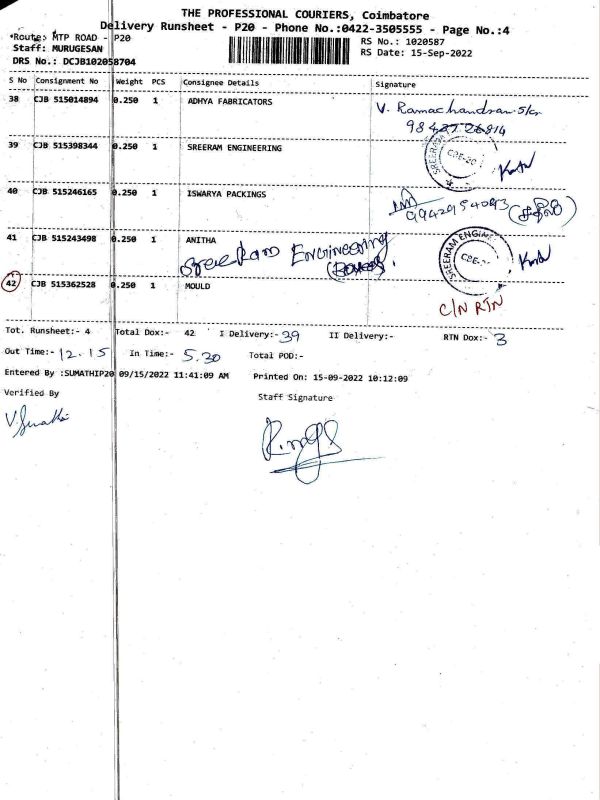 THE PROFESSIONAL COURIERS, Coimbatore
Delivery Runsheet - P20 - Phone No.:0422-3505555 - Page No.:4
Route: MTP ROAD - P20
Staff: MURUGESAN
DRS No.: DCJB102058704
RS No.: 1020587
RS Date: 15-Sep-2022
S No Consignment No Weight PCS Consignee Details Signature
38 CJB 515014894 0.250 1 ADHYA FABRICATORS V. Ramachandran
39 CJB 515398344 0.250 1 SREERAM ENGINEERING SREERAM CBE
40 CJB 515246165 0.250 1 ISWARYA PACKINGS
41 CJB 515243498 0.250 1 ANITHA SREERAM ENGINE CBE
Sree Ram Engineering
42 CJB 515362528 0.250 1 MOULD C/N RTN
Tot. Runsheet:- 4 Total Dox:- 42 I Delivery:- 39 II Delivery:- RTN Dox:- 3
Out Time:- 12.15 In Time:- 5.30 Total POD:-
Entered By :SUMATHIP20 09/15/2022 11:41:09 AM Printed On: 15-09-2022 10:12:09
Verified By Staff Signature